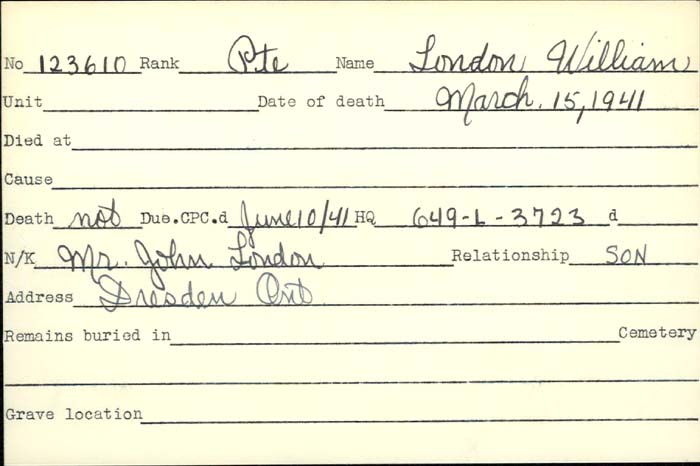 No 123610 Rank Pte Name London, William
Unit Date of death March. 15, 1941
Died at
Cause
Death not Due.CPC.d June 10/41 HQ 649-L-3723 d
N/K Mr. John London Relationship SON
Address Dresden Ont
Remains buried in Cemetery
Grave location